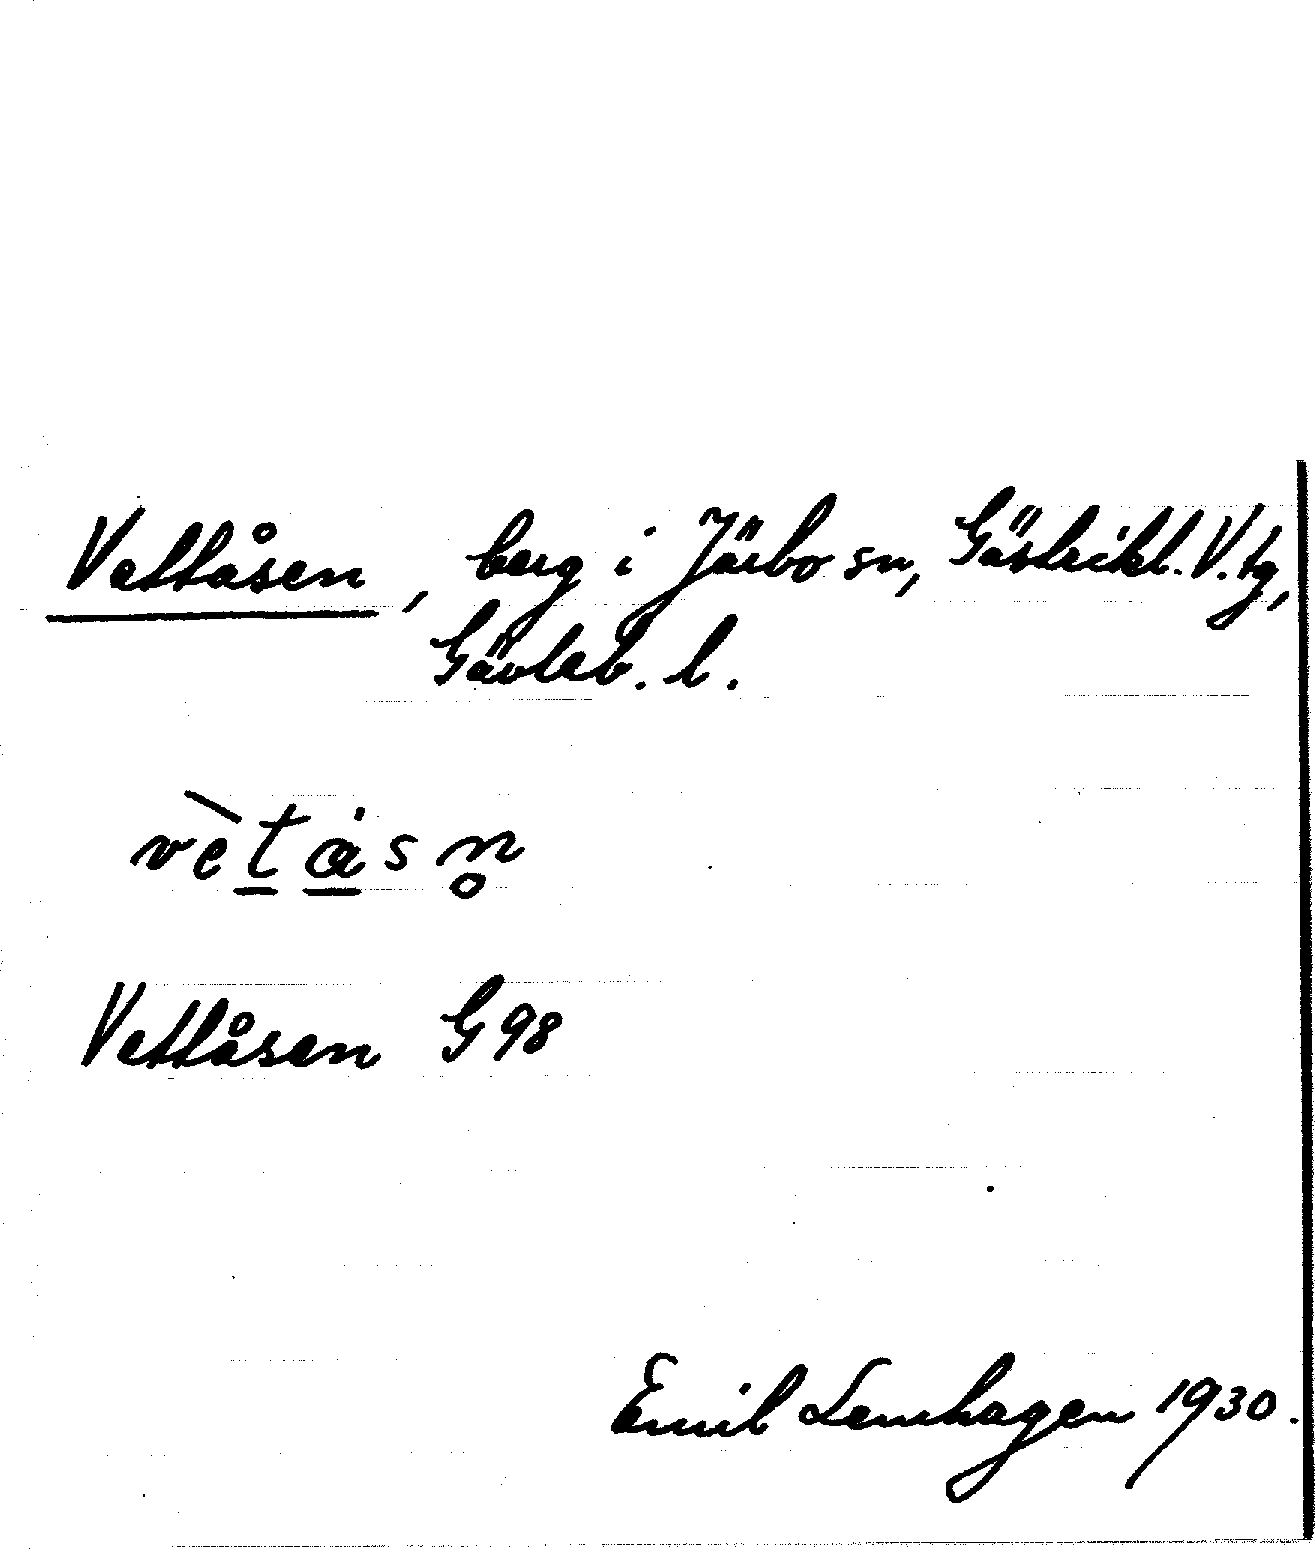 Vettåsen, berg i Järbo sn, Gästrikl. V. tg,
Gävleb. l.
vètåsn̥
Vettåsen G 98
Emil Lenhagen 1930.